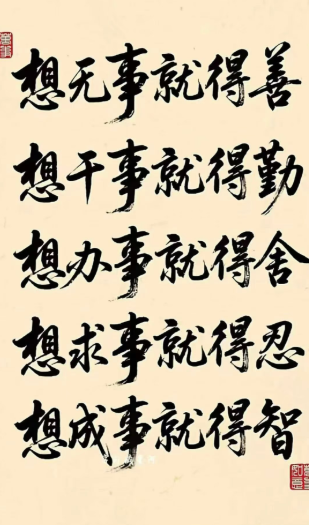 想无事就得善
想干事就得勤
想办事就得舍
想求事就得忍
想成事就得智